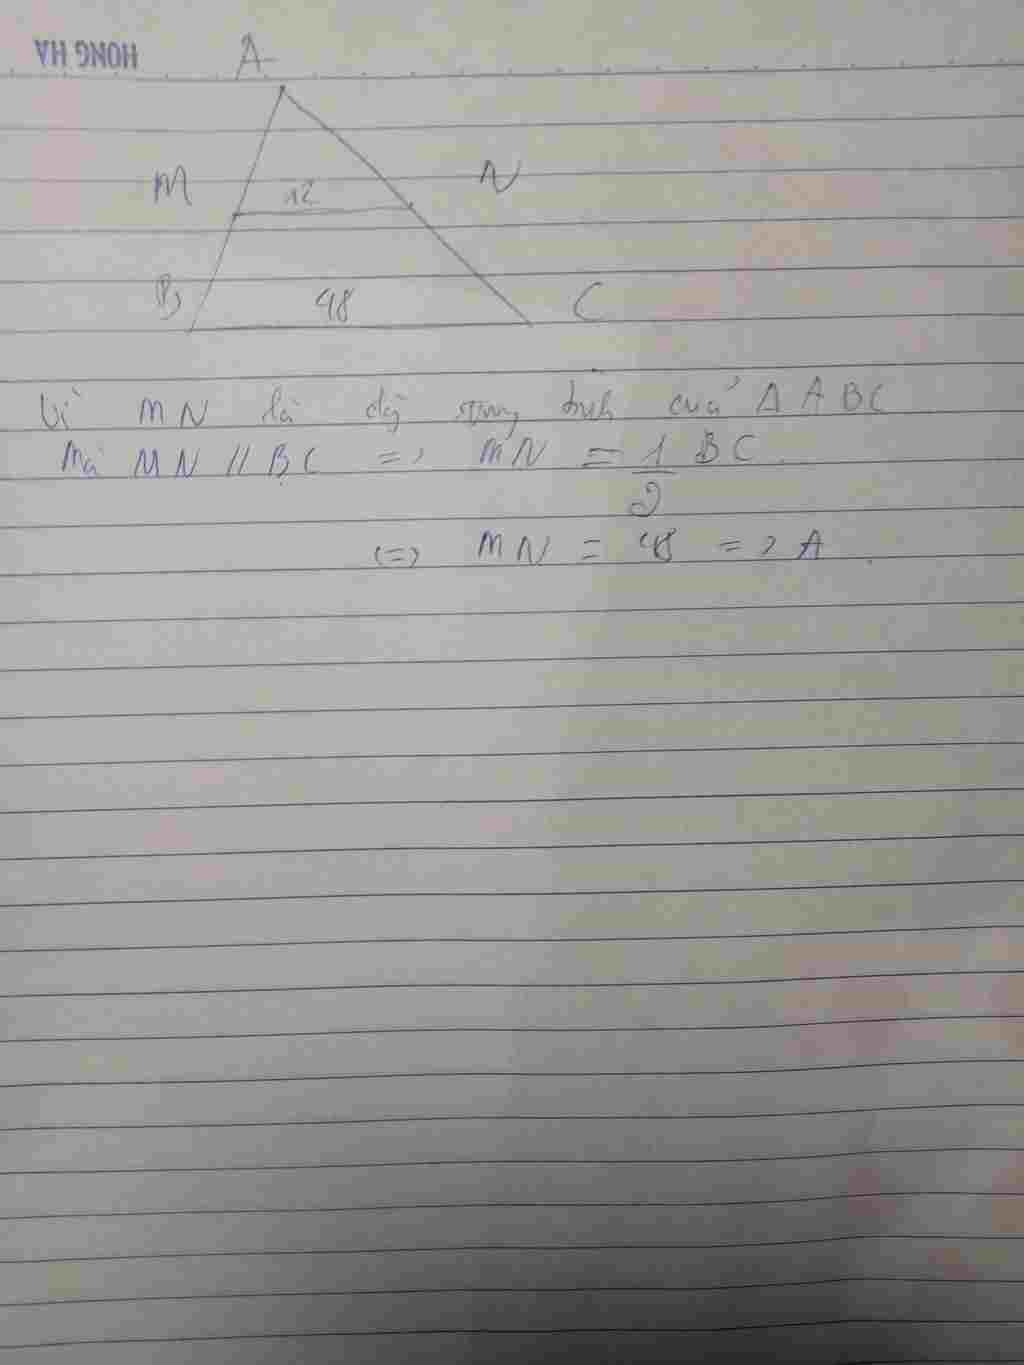 HONG HA
A
M
N
12
B
48
C
Vì MN là đg trung bình của Δ ABC
Mà MN // BC => MN = 1/2 BC
<=> MN = 48 => A